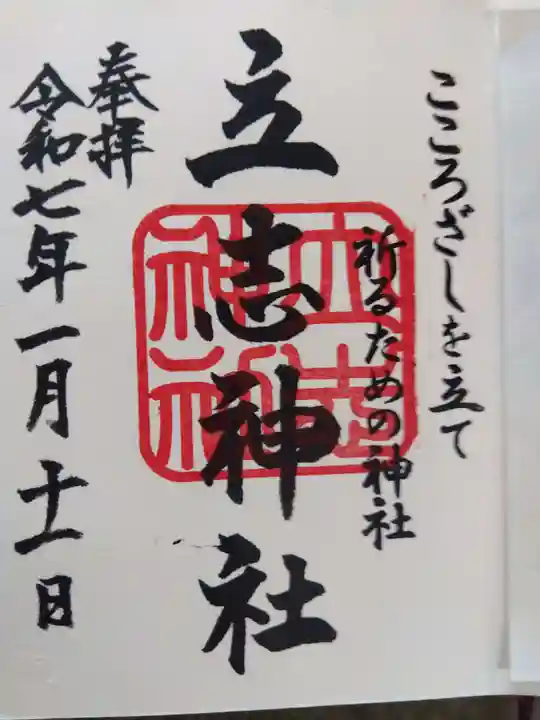 こころざしを立て
祈るための神社
立志神社
立志
神社
奉拝
令和七年一月十一日